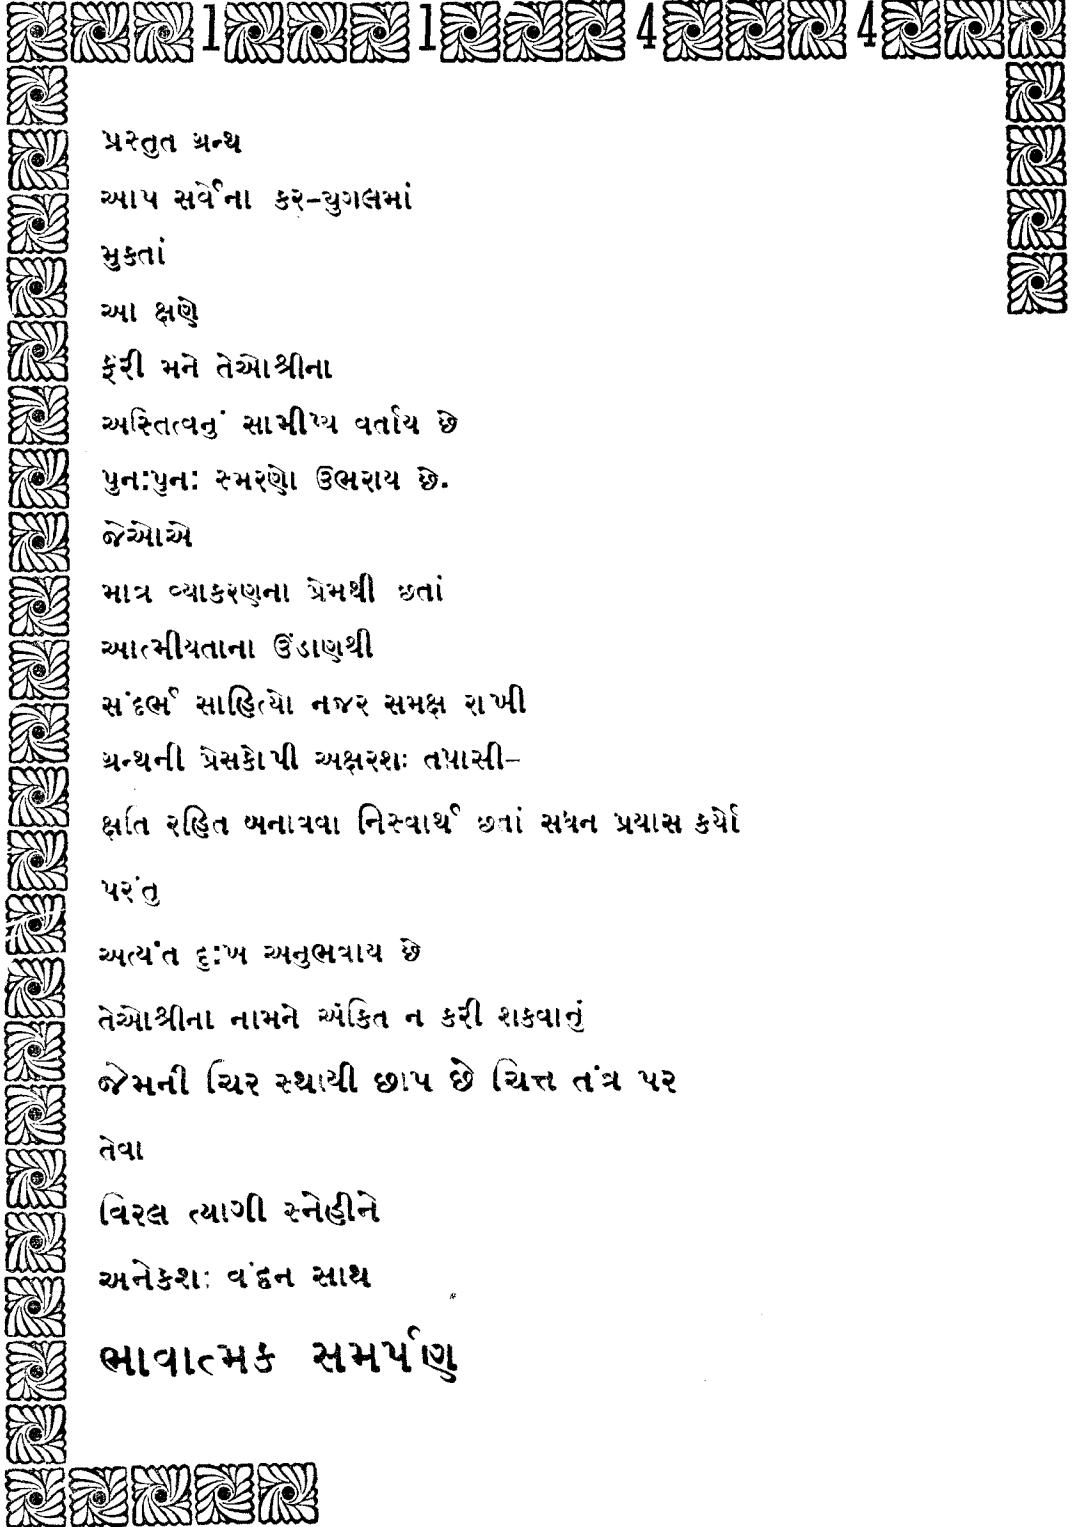 1 1 4 4
પ્રસ્તુત ગ્રન્થ
આપ સર્વેના કર-યુગલમાં
મુકતાં
આ ક્ષણે
ફરી મને તેઓશ્રીના
અસ્તિત્વનું સામીપ્ય વર્તાય છે
પુનઃપુનઃ સ્મરણો ઉભરાય છે.
જેઓએ
માત્ર વ્યાકરણના પ્રેમથી છતાં
આત્મીયતાના ઊંડાણથી
સંદર્ભ સાહિત્યો નજર સમક્ષ રાખી
ગ્રન્થની પ્રેસકોપી અક્ષરશઃ તપાસી-
ક્ષતિ રહિત બનાવવા નિસ્વાર્થ છતાં સઘન પ્રયાસ કર્યો
પરંતુ
અત્યંત દુઃખ અનુભવાય છે
તેઓશ્રીના નામને અંકિત ન કરી શકવાનું
જેમની ચિર સ્થાયી છાપ છે ચિત્ત તંત્ર પર
તેવા
વિરલ ત્યાગી સ્નેહીને
અનેકશઃ વંદન સાથ
ભાવાત્મક સમર્પણ